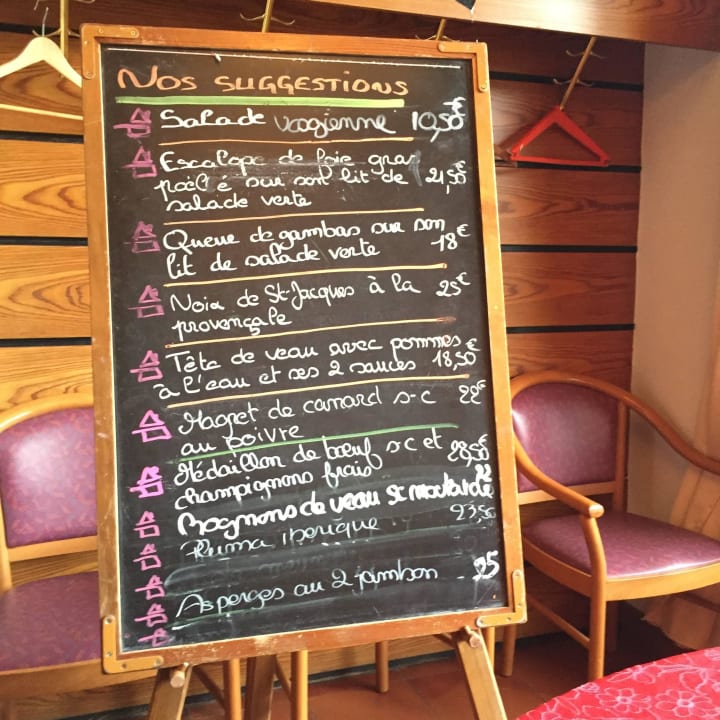 NOS SUGGESTIONS
Salade vosgienne 10,50€
Escalope de foie gras
poêlé sur son lit de 21,50€
salade verte
Queue de gambas sur son
lit de salade verte 18€
Noix de St-Jacques à la 25€
provençale
Tête de veau avec pommes
à l'eau et ses 2 sauces 18,50€
Magret de canard s-c 22€
au poivre
Médaillon de bœuf s-c et 28,50€
champignons frais
Rognons de veau sc moutarde 22
Pluma iberique 23,50
Asperges au 2 jambon - 25